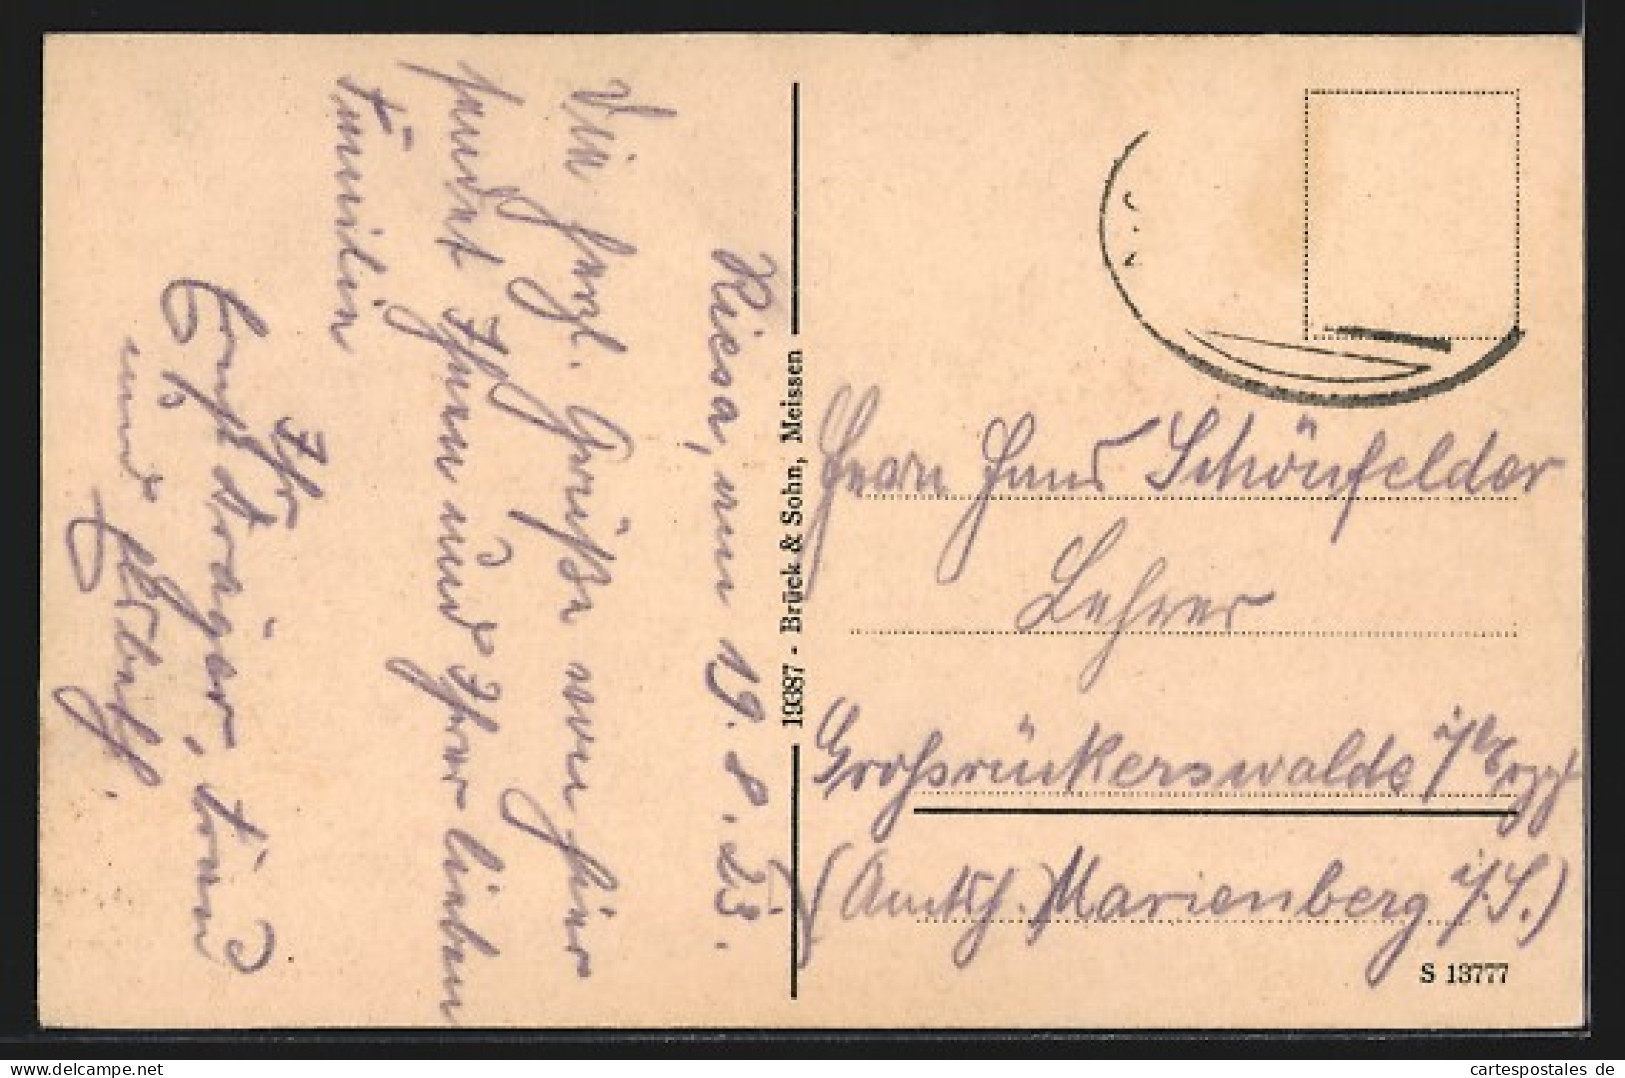 Riesa, am 19. 8. 23.
Die herzl. Grüße von hier
sendet Ihnen und Ihrer lieben
Familie
Ihr
Ernst Dräger, Frau
und
19387 - Brück & Sohn, Meissen
Herrn Hans Schönfelder
Lehrer
Grossrückerswalde i/Erzg
(Amtsh. Marienberg i/S.)
S 13777
www.cartespostales de